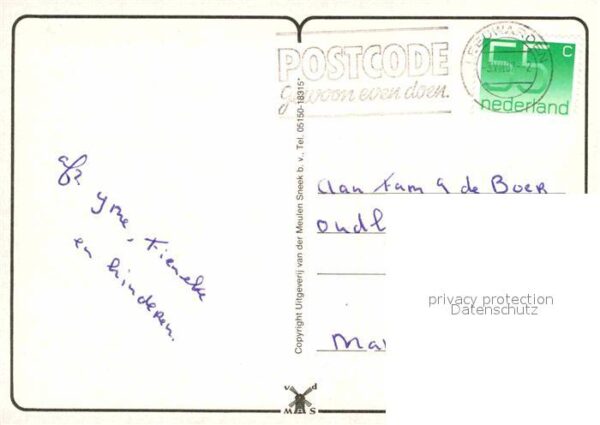 POSTCODE
gewoon even doen.
LEEUWARDEN
55 C
nederland
afz
Yme, Tieneke
en kinderen.
Copyright Uitgeverij van der Meulen Sneek b. v., Tel. 05150-18315*
Aan Fam
de Boer
oudl
Ma
privacy protection
Datenschutz
v d
W S